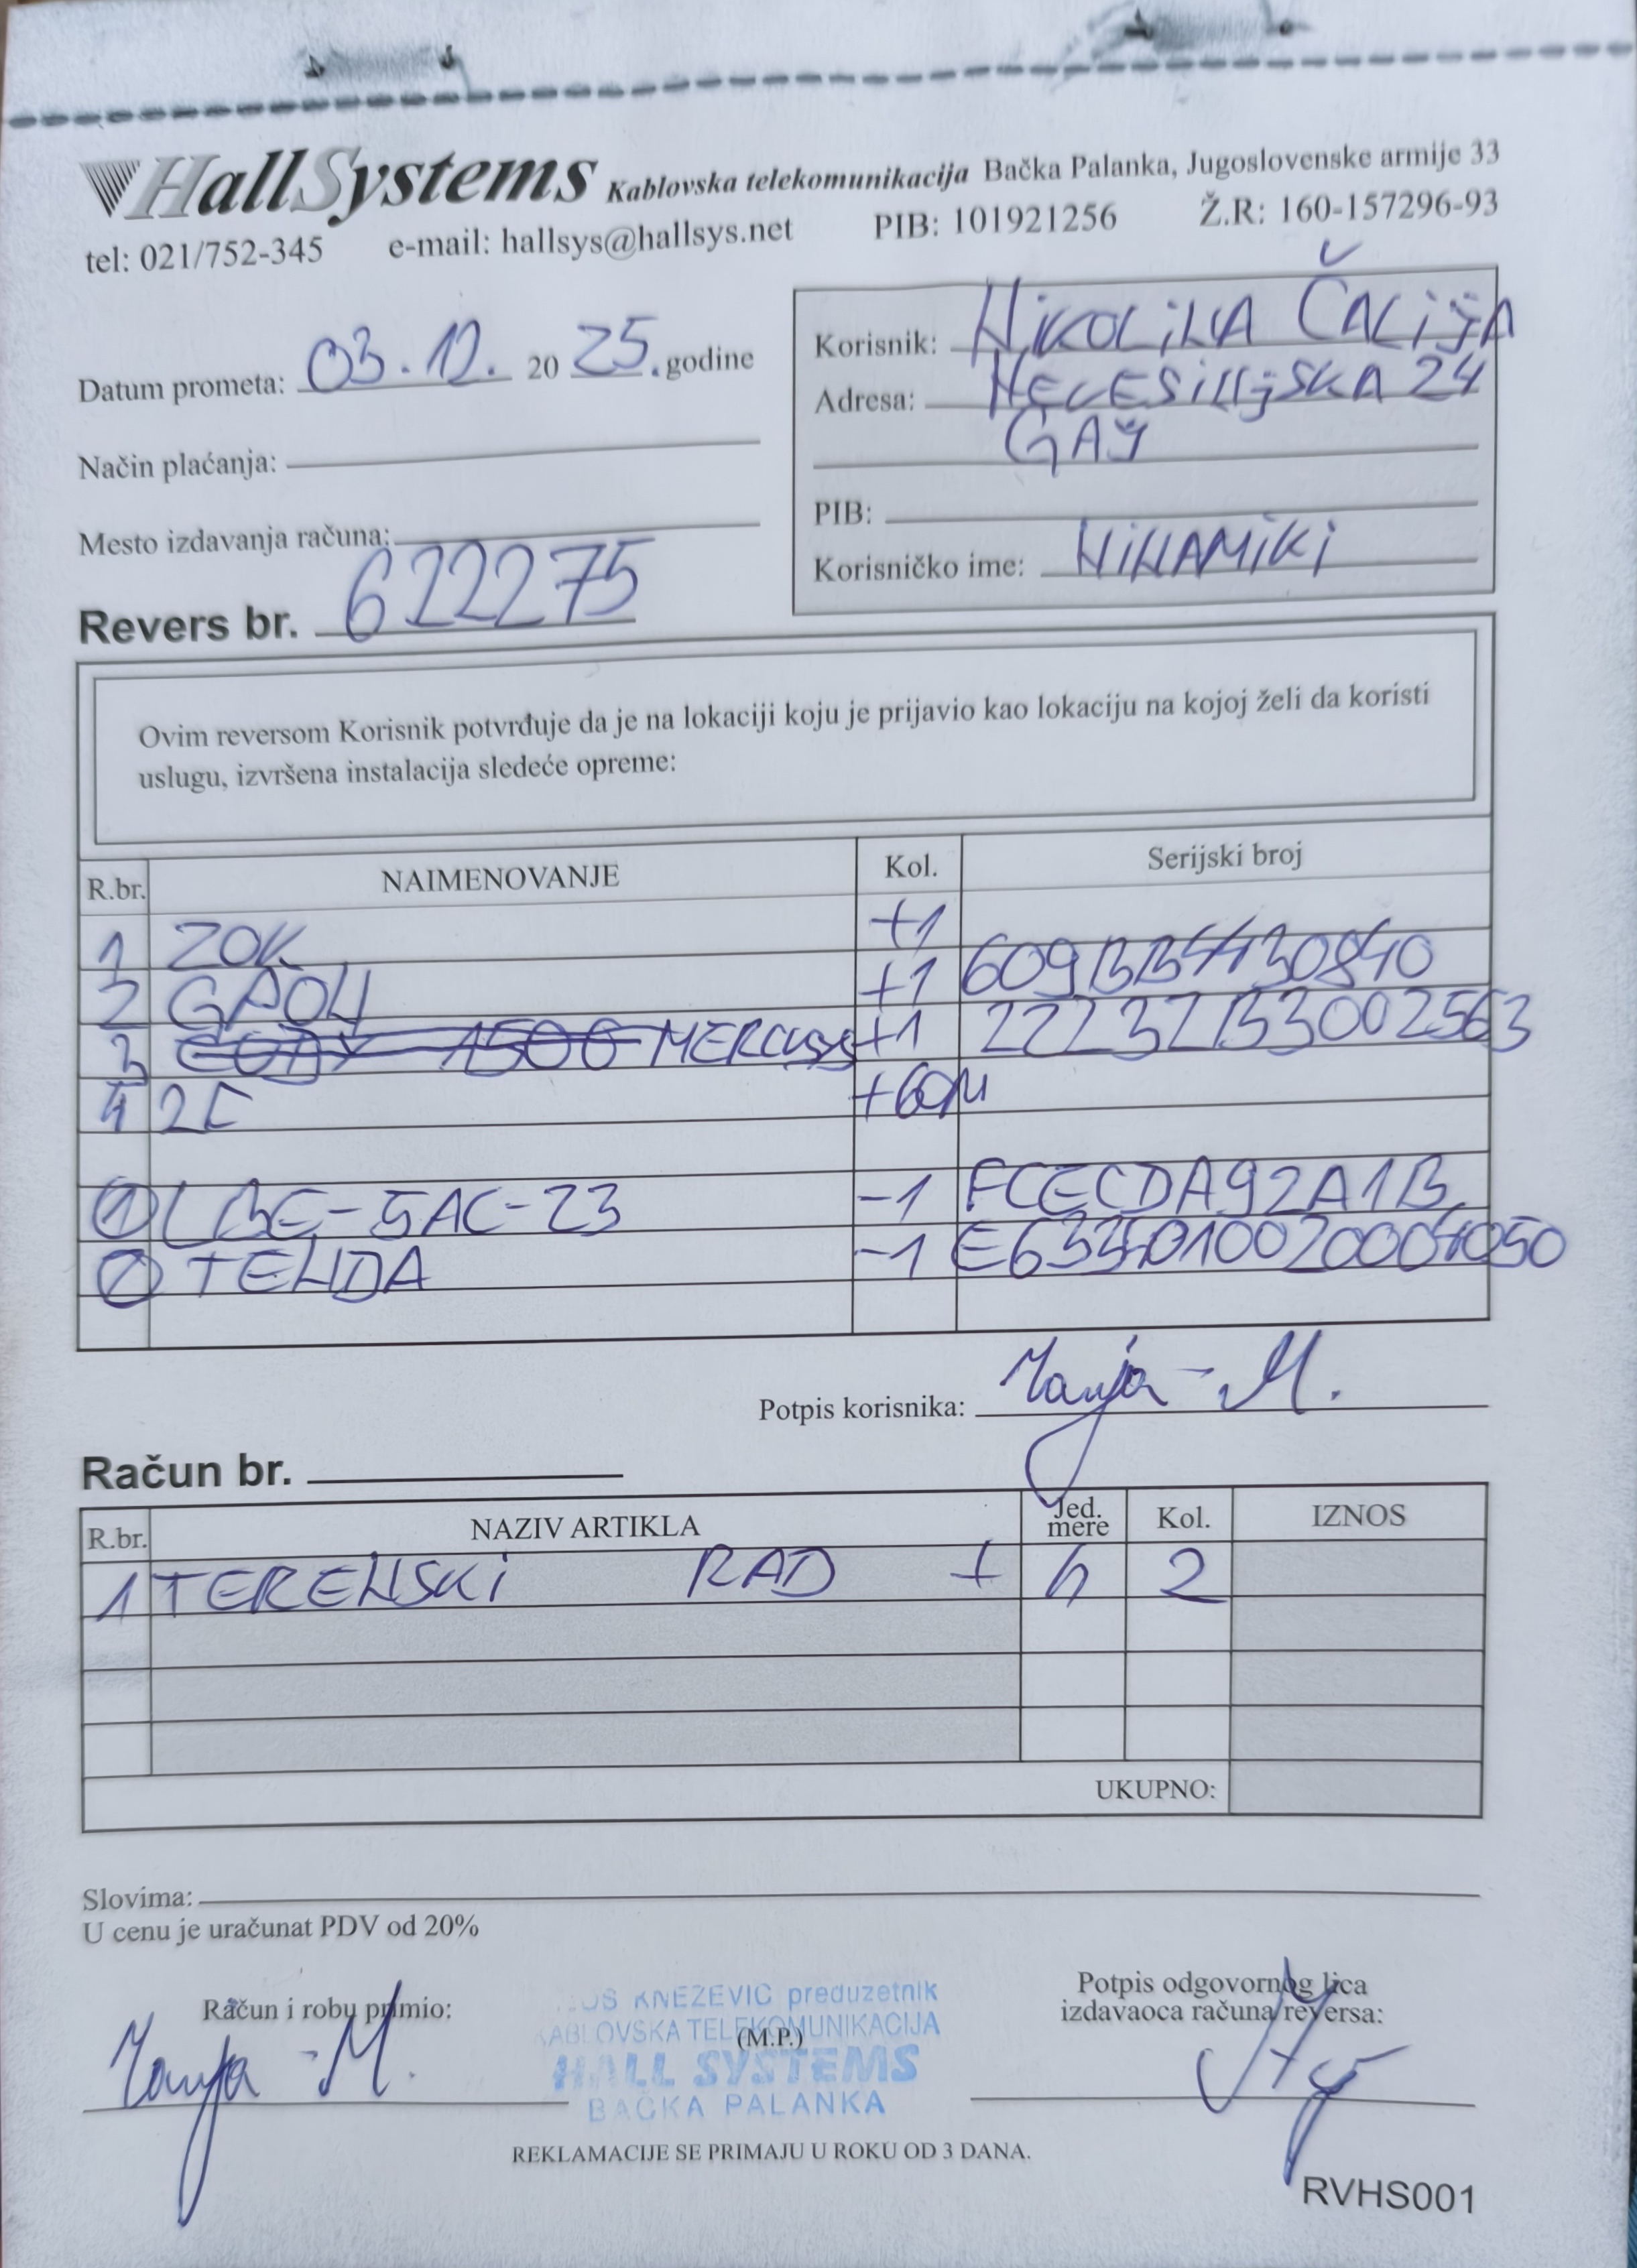 HallSystems Kablovska telekomunikacija Bačka Palanka, Jugoslovenske armije 33
tel: 021/752-345 e-mail: hallsys@hallsys.net PIB: 101921256 Ž.R: 160-157296-93
Datum prometa: 03.12. 2025. godine
Način plaćanja:
Mesto izdavanja računa:
Revers br. 622275
Korisnik: NiKOLiNA ČALijA
Adresa: NEVESiNjSKA 24
GAJ
PIB:
Korisničko ime: NiNAMiKi
Ovim reversom Korisnik potvrđuje da je na lokaciji koju je prijavio kao lokaciju na kojoj želi da koristi
uslugu, izvršena instalacija sledeće opreme:
R.br. NAIMENOVANJE Kol. Serijski broj
1 ZOK +1
2 GPON +1 609BB4130840
3 MERCUSYS +1 22232B3002563
4 2C +60M
1 LBE-5AC-23 -1 FCECDA92A1B
TENDA -1
Potpis korisnika: Tanja - M.
Račun br.
R.br. NAZIV ARTIKLA Jed. mere Kol. IZNOS
1 TERENSKi RAD + h 2
UKUPNO:
Slovima:
U cenu je uračunat PDV od 20%
Račun i robu primio:
Tanja - M.
KNEZEVIC preduzetnik
KABLOVSKA TELEKOMUNIKACIJA
(M.P.)
HALL SYSTEMS
BAČKA PALANKA
Potpis odgovornog lica
izdavaoca računa/reversa:
REKLAMACIJE SE PRIMAJU U ROKU OD 3 DANA.
RVHS001